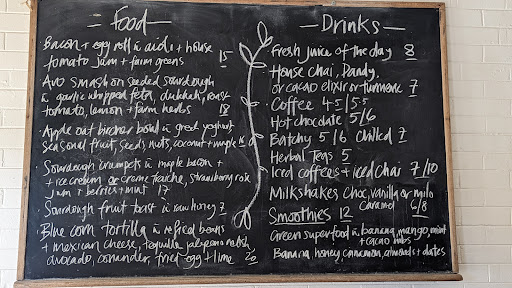 Food
Bacon + egg roll w aioli + house
tomato jam + farm greens 15
Avo smash on seeded sourdough
w garlic whipped feta, dukkah, roast
tomato, lemon + farm herbs 18
Apple oat bircher bowl w greek yoghurt
seasonal fruit, seeds, nuts, coconut + maple
Sourdough crumpets w maple bacon +
+ ice cream or creme fraiche, strawberry rose
jam + berries + mint 17
Sourdough fruit toast w raw honey 7
Blue corn tortilla w refried beans
+ mexican cheese, tequila jalapeno relish
avocado, coriander, fried egg + lime 20
Drinks
Fresh juice of the day 8
House Chai, Dandy,
or cacao elixir or turmeric 7
Coffee 4.5 / 5.5
Hot chocolate 5/6
Batchy 5/6 Chilled 7
Herbal Teas 5
Iced coffees + iced chai 7/10
Milkshakes Choc, vanilla or milo
Caramel 6/8
Smoothies 12
Green superfood w banana, mango, mint
+ cacao nibs
Banana, honey, cinnamon, almonds + dates